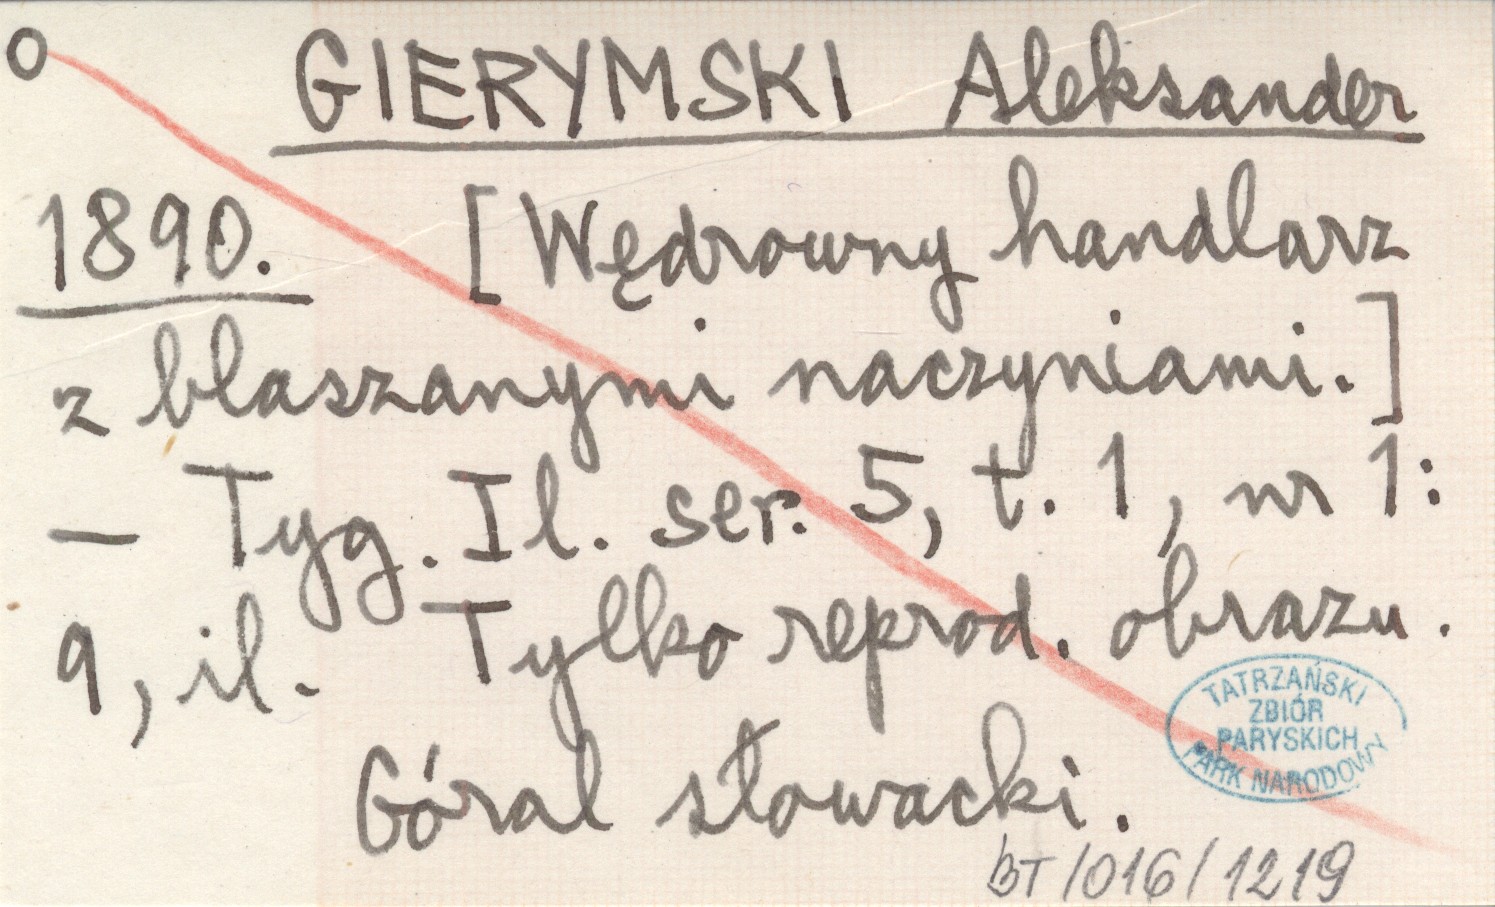 O GIERYMSKI Aleksander
1890. [Wędrowny handlarz
z blaszanymi naczyniami.]
– Tyg. Il. ser. 5, t. 1, nr 1:
9, il. Tylko reprod. obrazu.
Góral słowacki.
TATRZAŃSKI
ZBIÓR
PARYSKICH
PARK NARODOWY
BT/016/1219